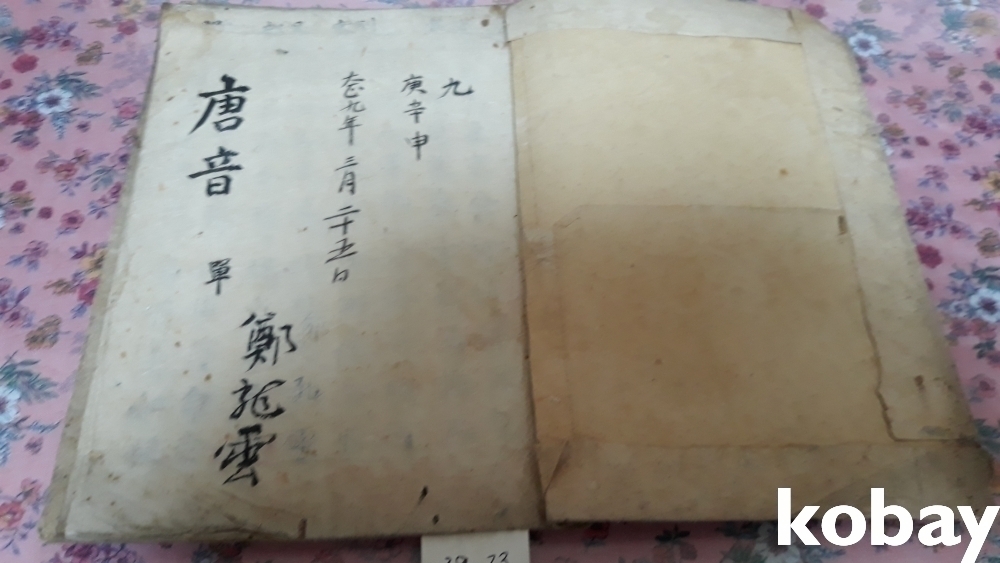 九
庚辛申
大正九年 三月 二十五日
唐音 單
鄭龍雲
kobay